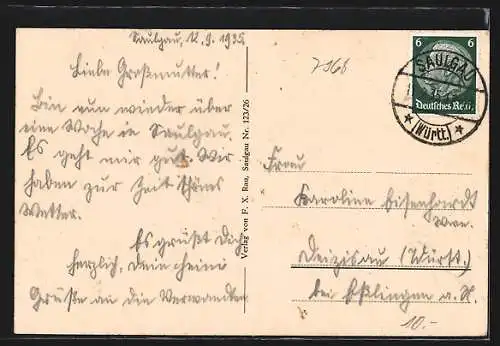 Saulgau, 12.9.1935
Liebe Großmutter!
Bin nun wieder über
eine Woche in Saulgau.
Es geht mir gut. Wir
haben zur Zeit schöns
Wetter.
Es grüßt Dich
herzlich, Dein
Grüße an die Verwandten
Verlag von F. X. Rau, Saulgau Nr. 123/26
7968
6 6
Deutsches Reich
SAULGAU
* (Württ.) *
Frau
Karoline Eisenhardt
Wwe.
Deizisau (Württ.)
bei Eßlingen a. N.
10.-